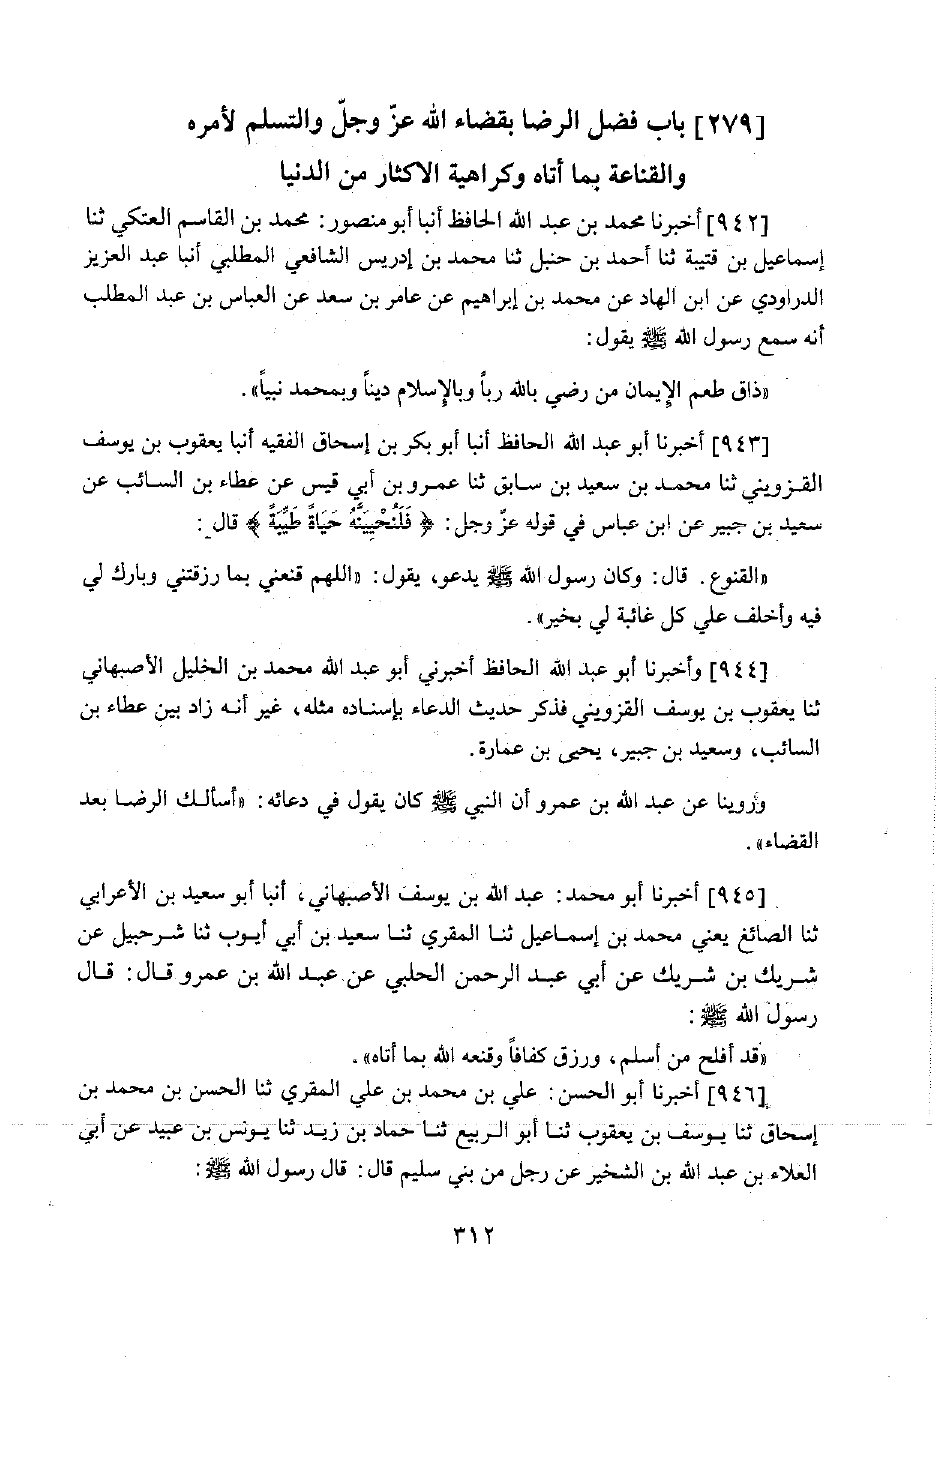 [٢٧٩] باب فضل الرضا بقضاء الله عزّ وجلّ والتسلم لأمره
والقناعة بما أتاه وكراهية الاكثار من الدنيا
[٩٤٢] أخبرنا محمد بن عبد الله الحافظ أنبا أبو منصور: محمد بن القاسم العتكي ثنا
إسماعيل بن قتيبة ثنا أحمد بن حنبل ثنا محمد بن إدريس الشافعي المطلبي أنبا عبد العزيز
الدراودي عن ابن الهاد عن محمد بن إبراهيم عن عامر بن سعد عن العباس بن عبد المطلب
أنه سمع رسول الله ﷺ يقول:
«ذاق طعم الإيمان من رضي بالله رباً وبالإسلام ديناً وبمحمد نبياً».
[٩٤٣] أخبرنا أبو عبد الله الحافظ أنبا أبو بكر بن إسحاق الفقيه أنبا يعقوب بن يوسف
القزويني ثنا محمد بن سعيد بن سابق ثنا عمرو بن أبي قيس عن عطاء بن السائب عن
سعيد بن جبير عن ابن عباس في قوله عزّ وجل: ﴿ فَلَنُحْيِيَنَّهُ حَيَاةً طَيِّبَةً ﴾ قال:
«القنوع. قال: وكان رسول الله ﷺ يدعو، يقول: «اللهم قنعني بما رزقتني وبارك لي
فيه وأخلف علي كل غائبة لي بخير».
[٩٤٤] وأخبرنا أبو عبد الله الحافظ أخبرني أبو عبد الله محمد بن الخليل الأصبهاني
ثنا يعقوب بن يوسف القزويني فذكر حديث الدعاء بإسناده مثله، غير أنه زاد بين عطاء بن
السائب، وسعيد بن جبير، يحيى بن عمارة.
ورُوينا عن عبد الله بن عمرو أن النبي ﷺ كان يقول في دعائه: «أسألك الرضا بعد
القضاء».
[٩٤٥] أخبرنا أبو محمد: عبد الله بن يوسف الأصبهاني، أنبا أبو سعيد بن الأعرابي
ثنا الصائغ يعني محمد بن إسماعيل ثنا المقري ثنا سعيد بن أبي أيوب ثنا شرحبيل عن
شريك بن شريك عن أبي عبد الرحمن الحلبي عن عبد الله بن عمرو قال: قال
رسول الله ﷺ:
«قد أفلح من أسلم، ورزق كفافاً وقنعه الله بما أتاه».
[٩٤٦] أخبرنا أبو الحسن: علي بن محمد بن علي المقري ثنا الحسن بن محمد بن
إسحاق ثنا يوسف بن يعقوب ثنا أبو الربيع ثنا حماد بن زيد ثنا يونس بن عبيد عن أبي
العلاء بن عبد الله بن الشخير عن رجل من بني سليم قال: قال رسول الله ﷺ:
٣١٢